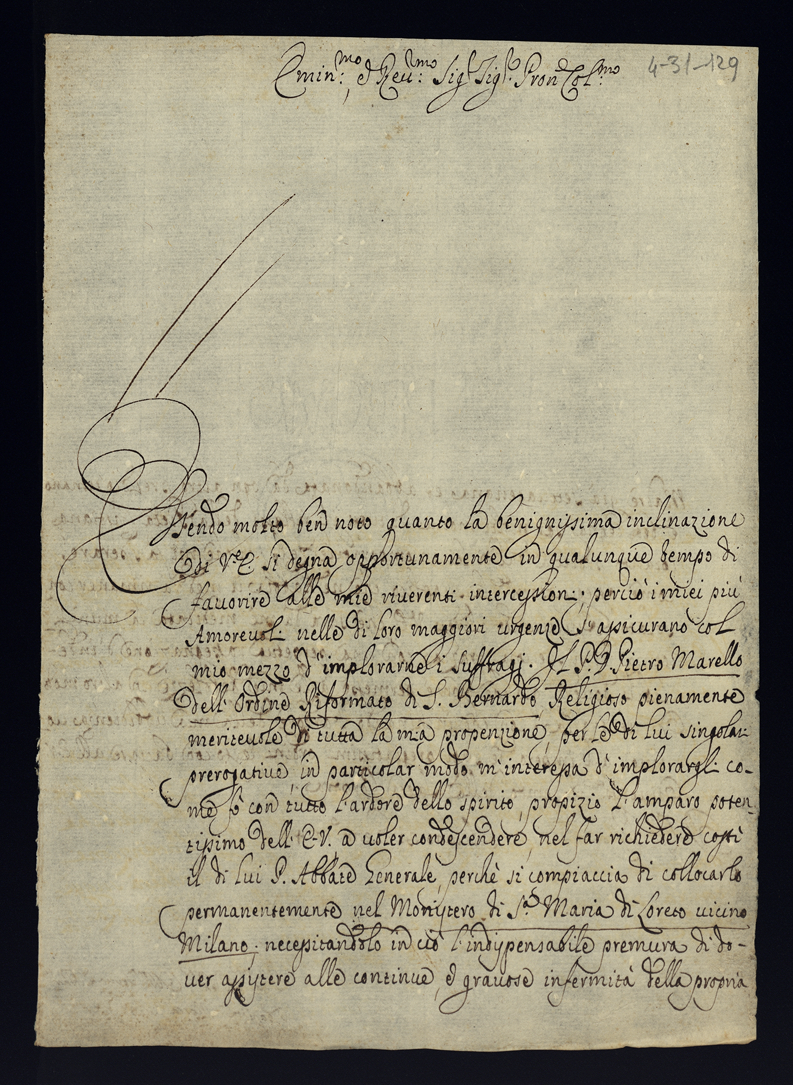 Emin.mo, e Reu.mo Sig.r Sig.r Pron Col.mo
4-31-129
Essendo molto ben noto quanto la benignissima inclinazione
di V.E. si degna opportunamente in qualunque tempo di
favorire alle mie riverenti intercessioni; perciò i miei più
Amorevoli nelle di loro maggiori urgenze s'assicurano col
mio mezzo d'implorarne i suffragj. Il P. D. Pietro Marello
dell'Ordine Riformato di S. Bernardo Religioso pienamente
meritevole di tutta la mia propenzione, per le di lui singolari
prerogative, in particolar modo m'interessa d'implorargli co-
me fò con tutto l'ardore dello spirito, propizio l'amparo poten-
tissimo dell'E.V. a voler condescendere, nel far richiedere costì
il di lui P. Abbate Generale, perchè si compiaccia di collocarlo
permanentemente nel Monistero di S.ta Maria di Loreto vicino
Milano; necessitandolo in ciò l'indispensabile premura di do-
ver assistere alle continue, e gravose infermità della propria